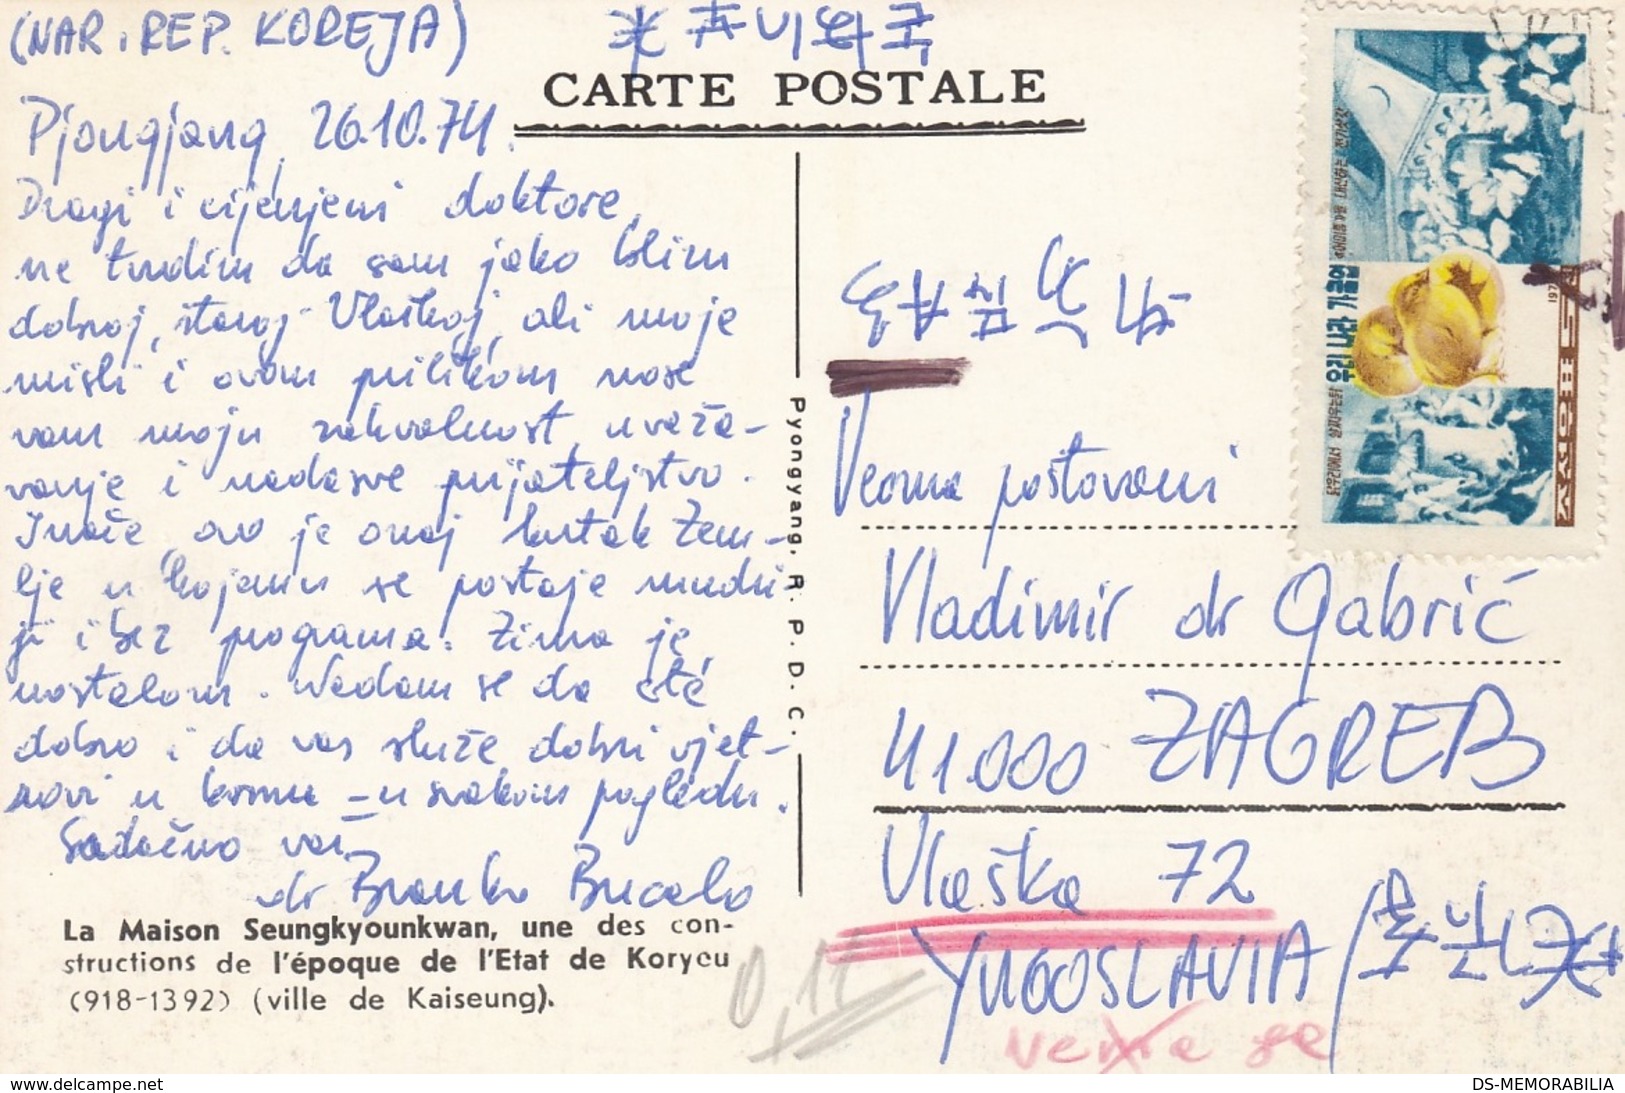 (NAR. REP. KOREJA)
CARTE POSTALE
Pjongjang, 26.10.74.
Dragi i cijenjeni doktore,
ne tvrdim da sam jako blizu
dobroj, staroj Vlaškoj, ali moje
misli i ovom prilikom nose
vam moju zahvalnost, uvaža-
vanje i nadasve prijateljstvo.
Inače, ovo je onaj kutak Zem-
lje u kojemu se postaje mudri
ji i bez programa. Zima je
nostalom. Nadam se da ste
dobro i da vas služe dobri vjet-
rovi u krmu – u svakom pogledu.
Srdačno vaš
dr Branko Bucalo
La Maison Seungkyounkwan, une des con-
structions de l'époque de l'Etat de Koryeu
(918-1392) (ville de Kaiseung).
Pyongyang. R. P. D. C.
Veoma poštovani
Vladimir dr Gabrić
41000 ZAGREB
Vlaška 72
YUGOSLAVIA
0,15
우리 나라 가을
DS-MEMORABILIA
www.delcampe.net